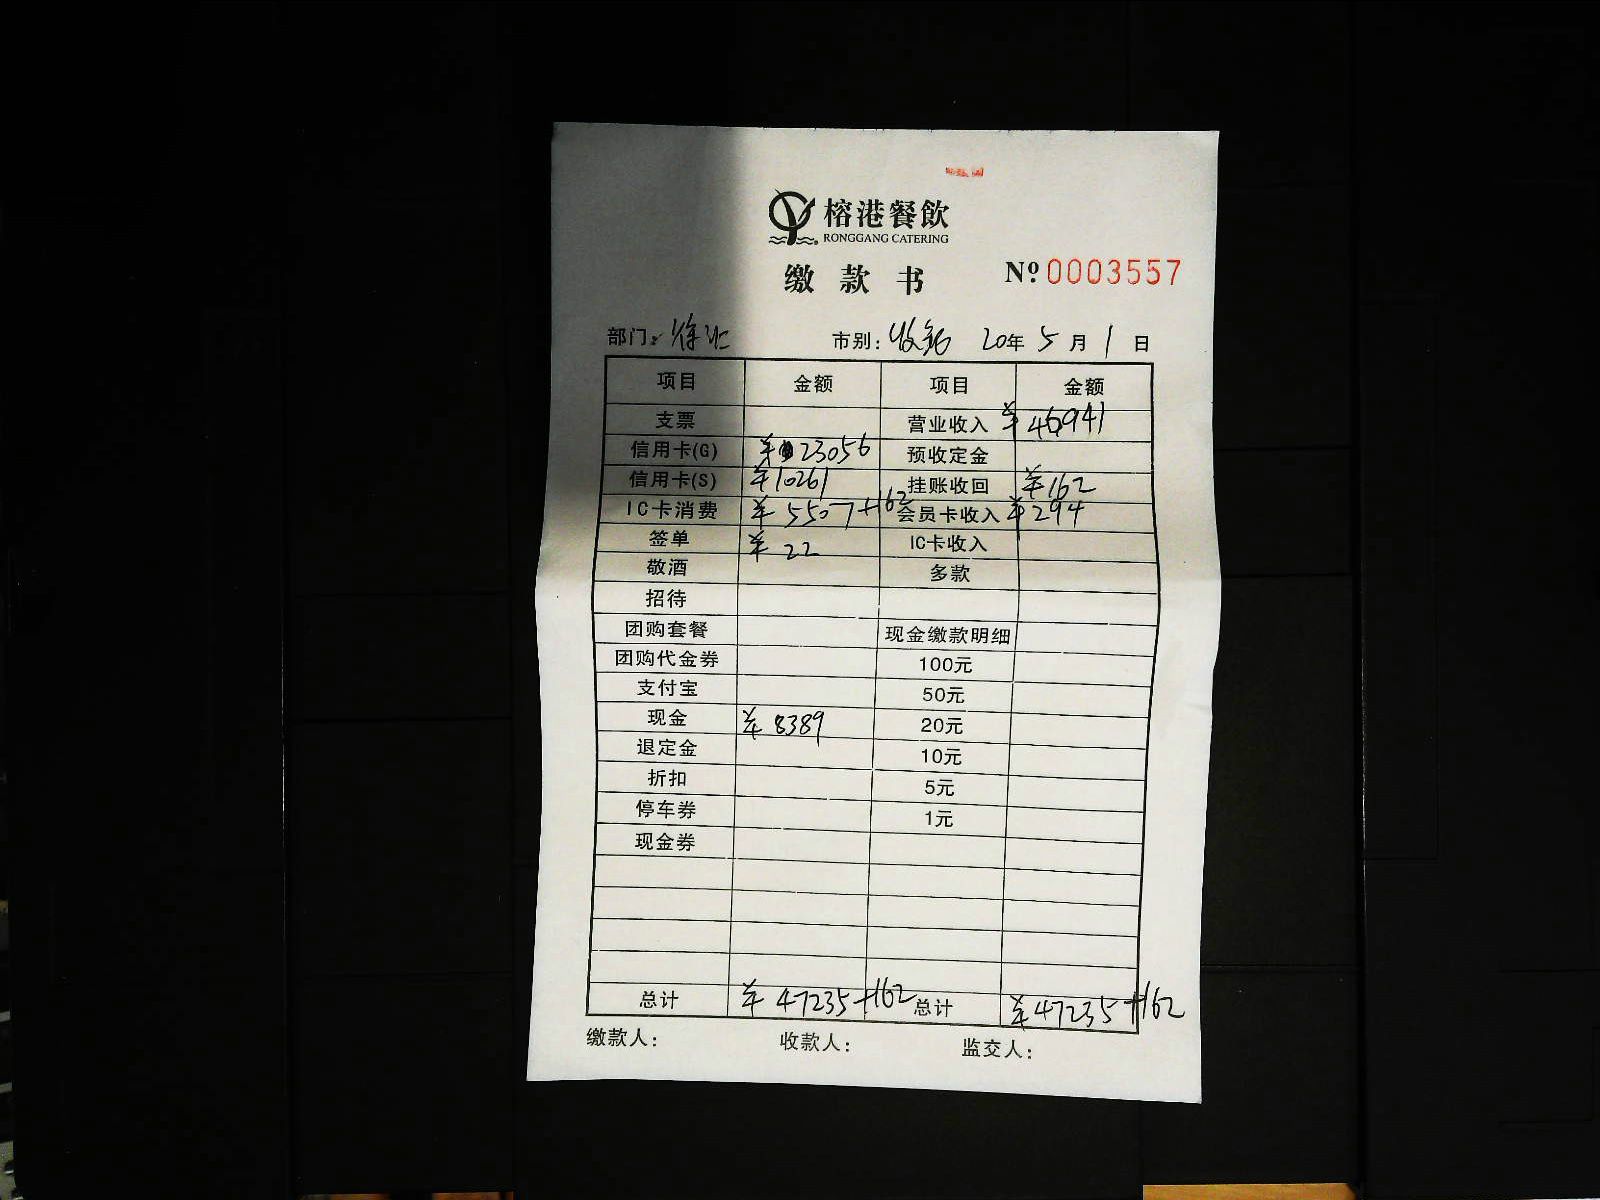 榕港餐飲
RONGGANG CATERING
缴款书 № 0003557
部门：徐汇 市别：收银 20年 5月 1日
项目 金额 项目 金额
支票 营业收入 ¥46941
信用卡(G) ¥23056 预收定金
信用卡(S) ¥10261 挂账收回 ¥162
IC卡消费 ¥5507+162 会员卡收入 ¥294
签单 ¥22 IC卡收入
敬酒 多款
招待
团购套餐 现金缴款明细
团购代金券 100元
支付宝 50元
现金 ¥8389 20元
退定金 10元
折扣 5元
停车券 1元
现金券
总计 ¥47235+162 总计 ¥47235+162
缴款人： 收款人： 监交人：